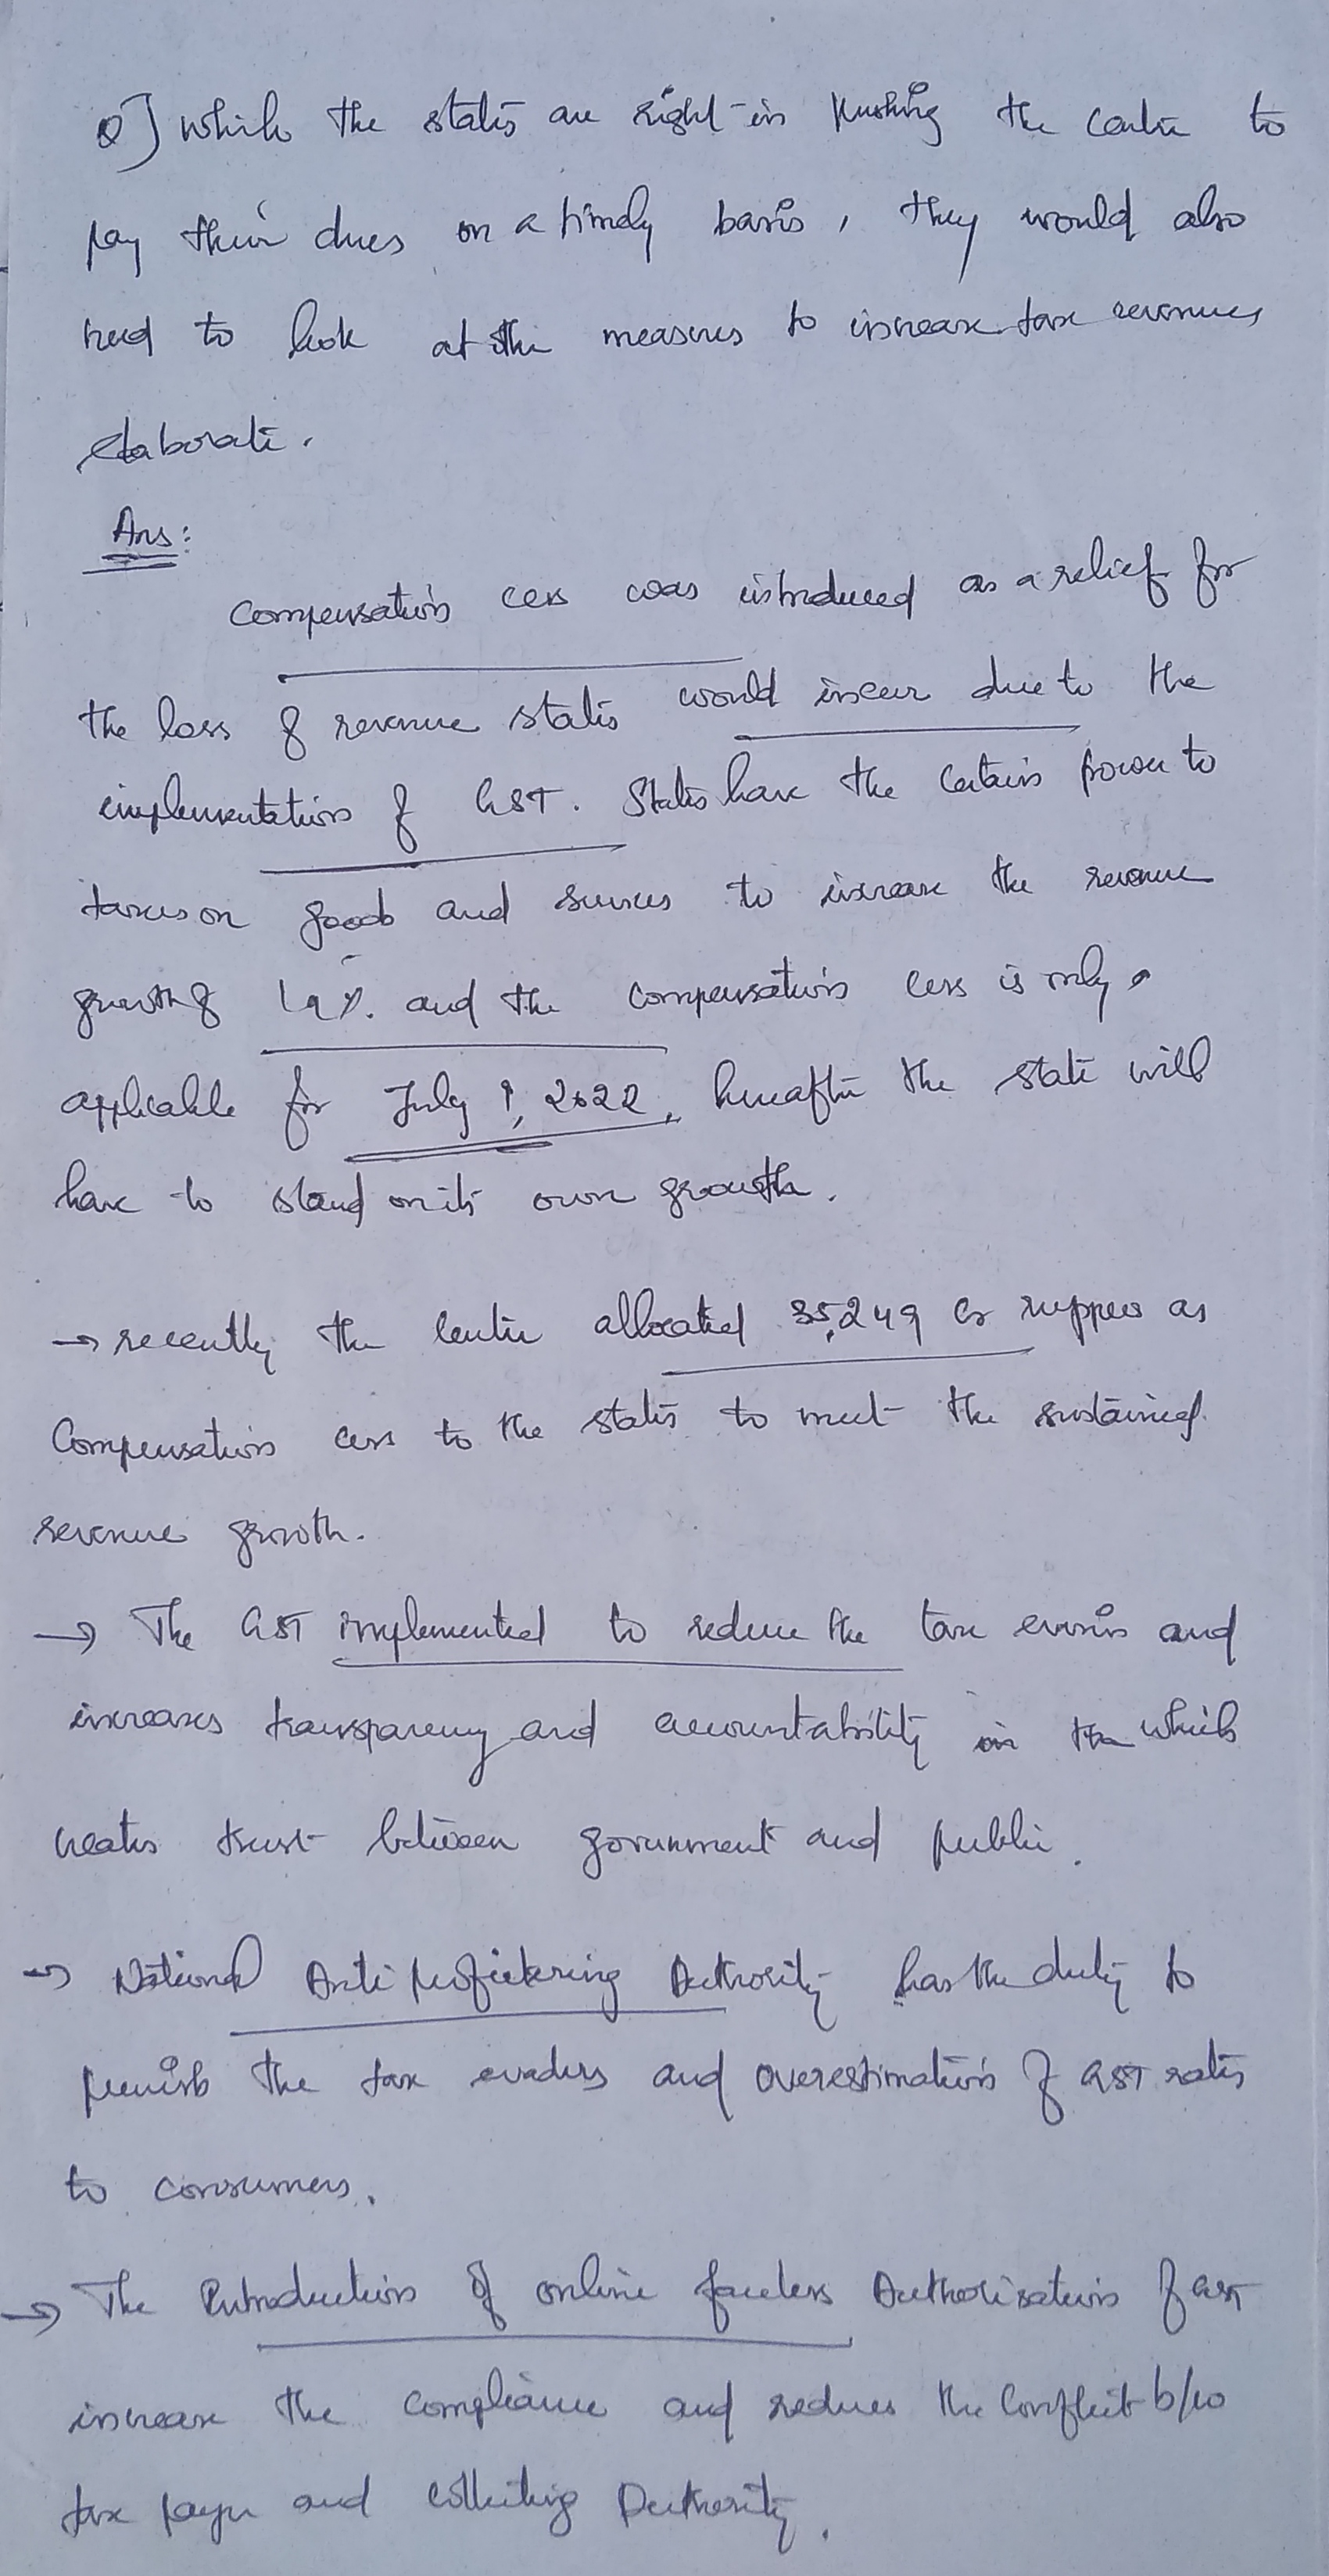 Q] while the states are right in pushing the centre to
pay their dues on a timely basis, they would also
need to look at the measures to increase tax revenues
elaborate.
Ans:
Compensation cess was introduced as a relief for
the loss of revenue states would incur due to the
implementation of GST. States have the certain power to
taxes on goods and services to increase the revenue
growth of 14%. and the compensation cess is only
applicable for July 1, 2022, hereafter the state will
have to stand on its own growth.
→ recently the centre allocated 35,249 cr ruppes as
Compensation cess to the states to meet the sustained
revenue growth.
→ The GST implemented to reduce the tax evasion and
increases transparency and accountability in the which
creates trust between government and public.
→ National Anti profiteering Authority has the duty to
punish the tax evaders and overestimation of GST rates
to consumers.
→ The Introduction of online faceless Authorisation of GST
increase the compliance and reduces the conflict b/w
tax payer and collecting Authority.